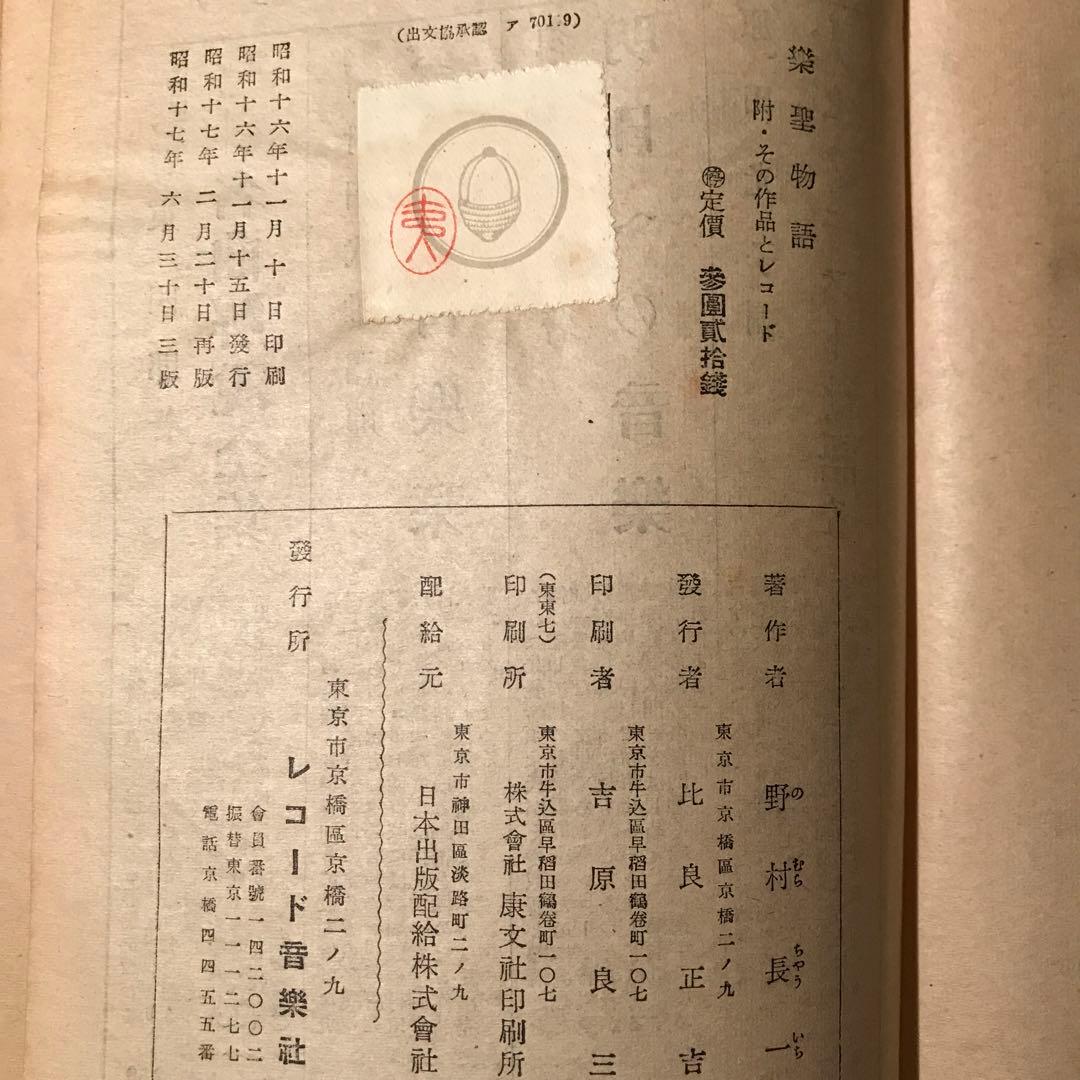 樂聖物語
附・その作品とレコード
㊕定價 參圓貳拾錢
(出文協承認 ア 701.9)
昭和十六年十一月十日印刷
昭和十六年十一月十五日發行
昭和十七年二月二十日再版
昭和十七年六月三十日三版
著作者 野村長一
のむらちやういち
東京市京橋區京橋二ノ九
發行者 比良正吉
東京市牛込區早稻田鶴卷町一〇七
印刷者 吉原良三
(東東七)
東京市牛込區早稻田鶴卷町一〇七
印刷所 株式會社 康文社印刷所
東京市神田區淡路町二ノ九
配給元 日本出版配給株式會社
東京市京橋區京橋二ノ九
發行所 レコード音樂社
會員番號一四二〇〇二
振替東京一一一二七七
電話京橋四四五五番